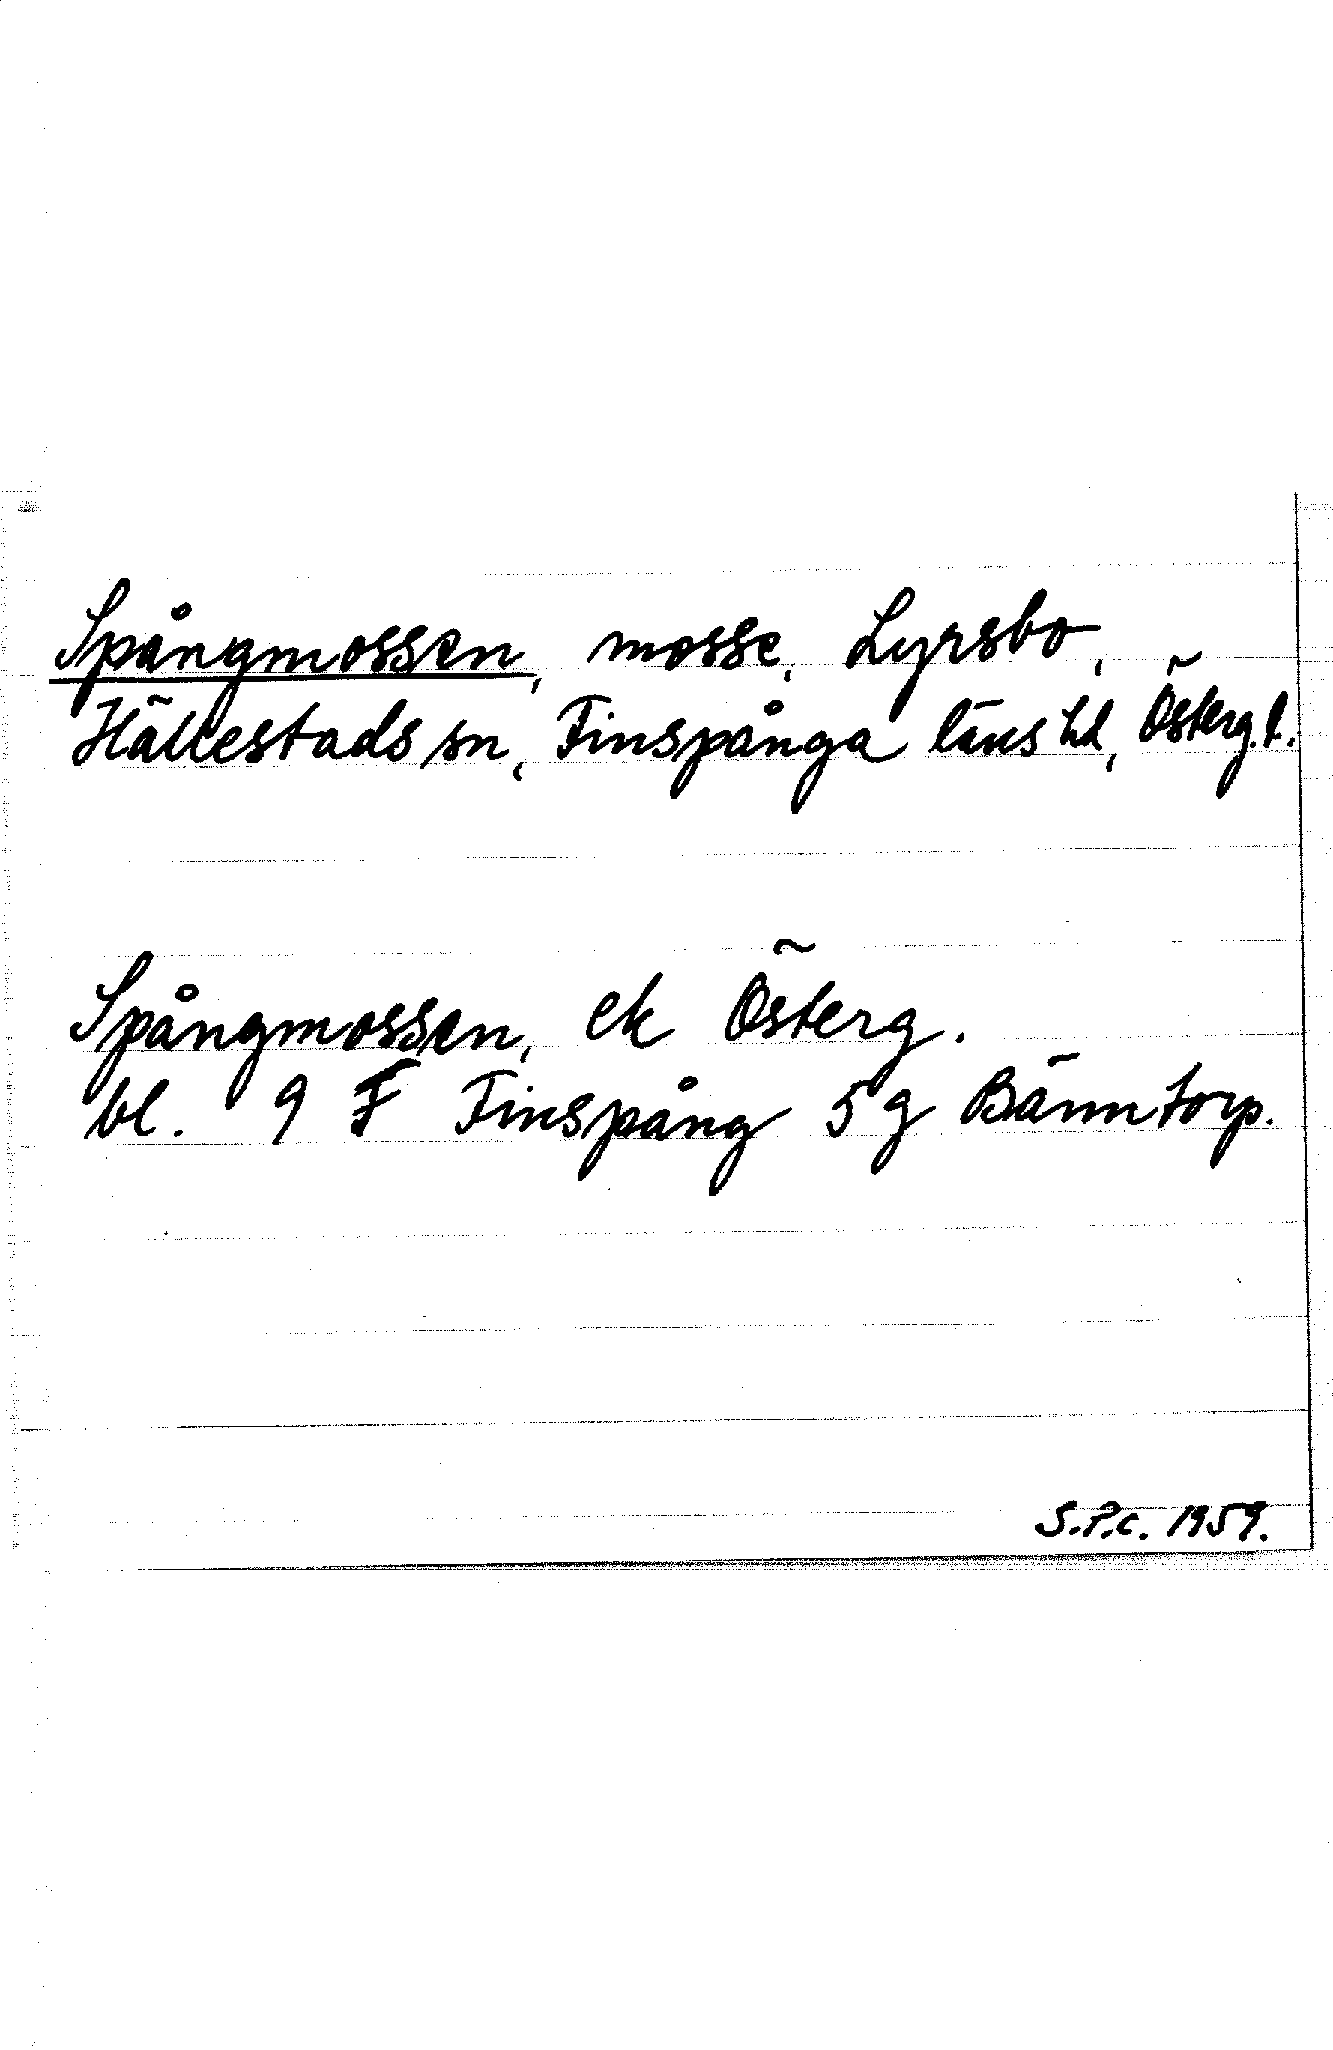 Spångmossen, mosse, Lyrsbo,
Hällestads sn, Finspånga läns hd, Österg.l.
Spångmossen, ek Österg.
bl. 9 F Finspång 5 g Bänntorp.
S.P.C. 1959.